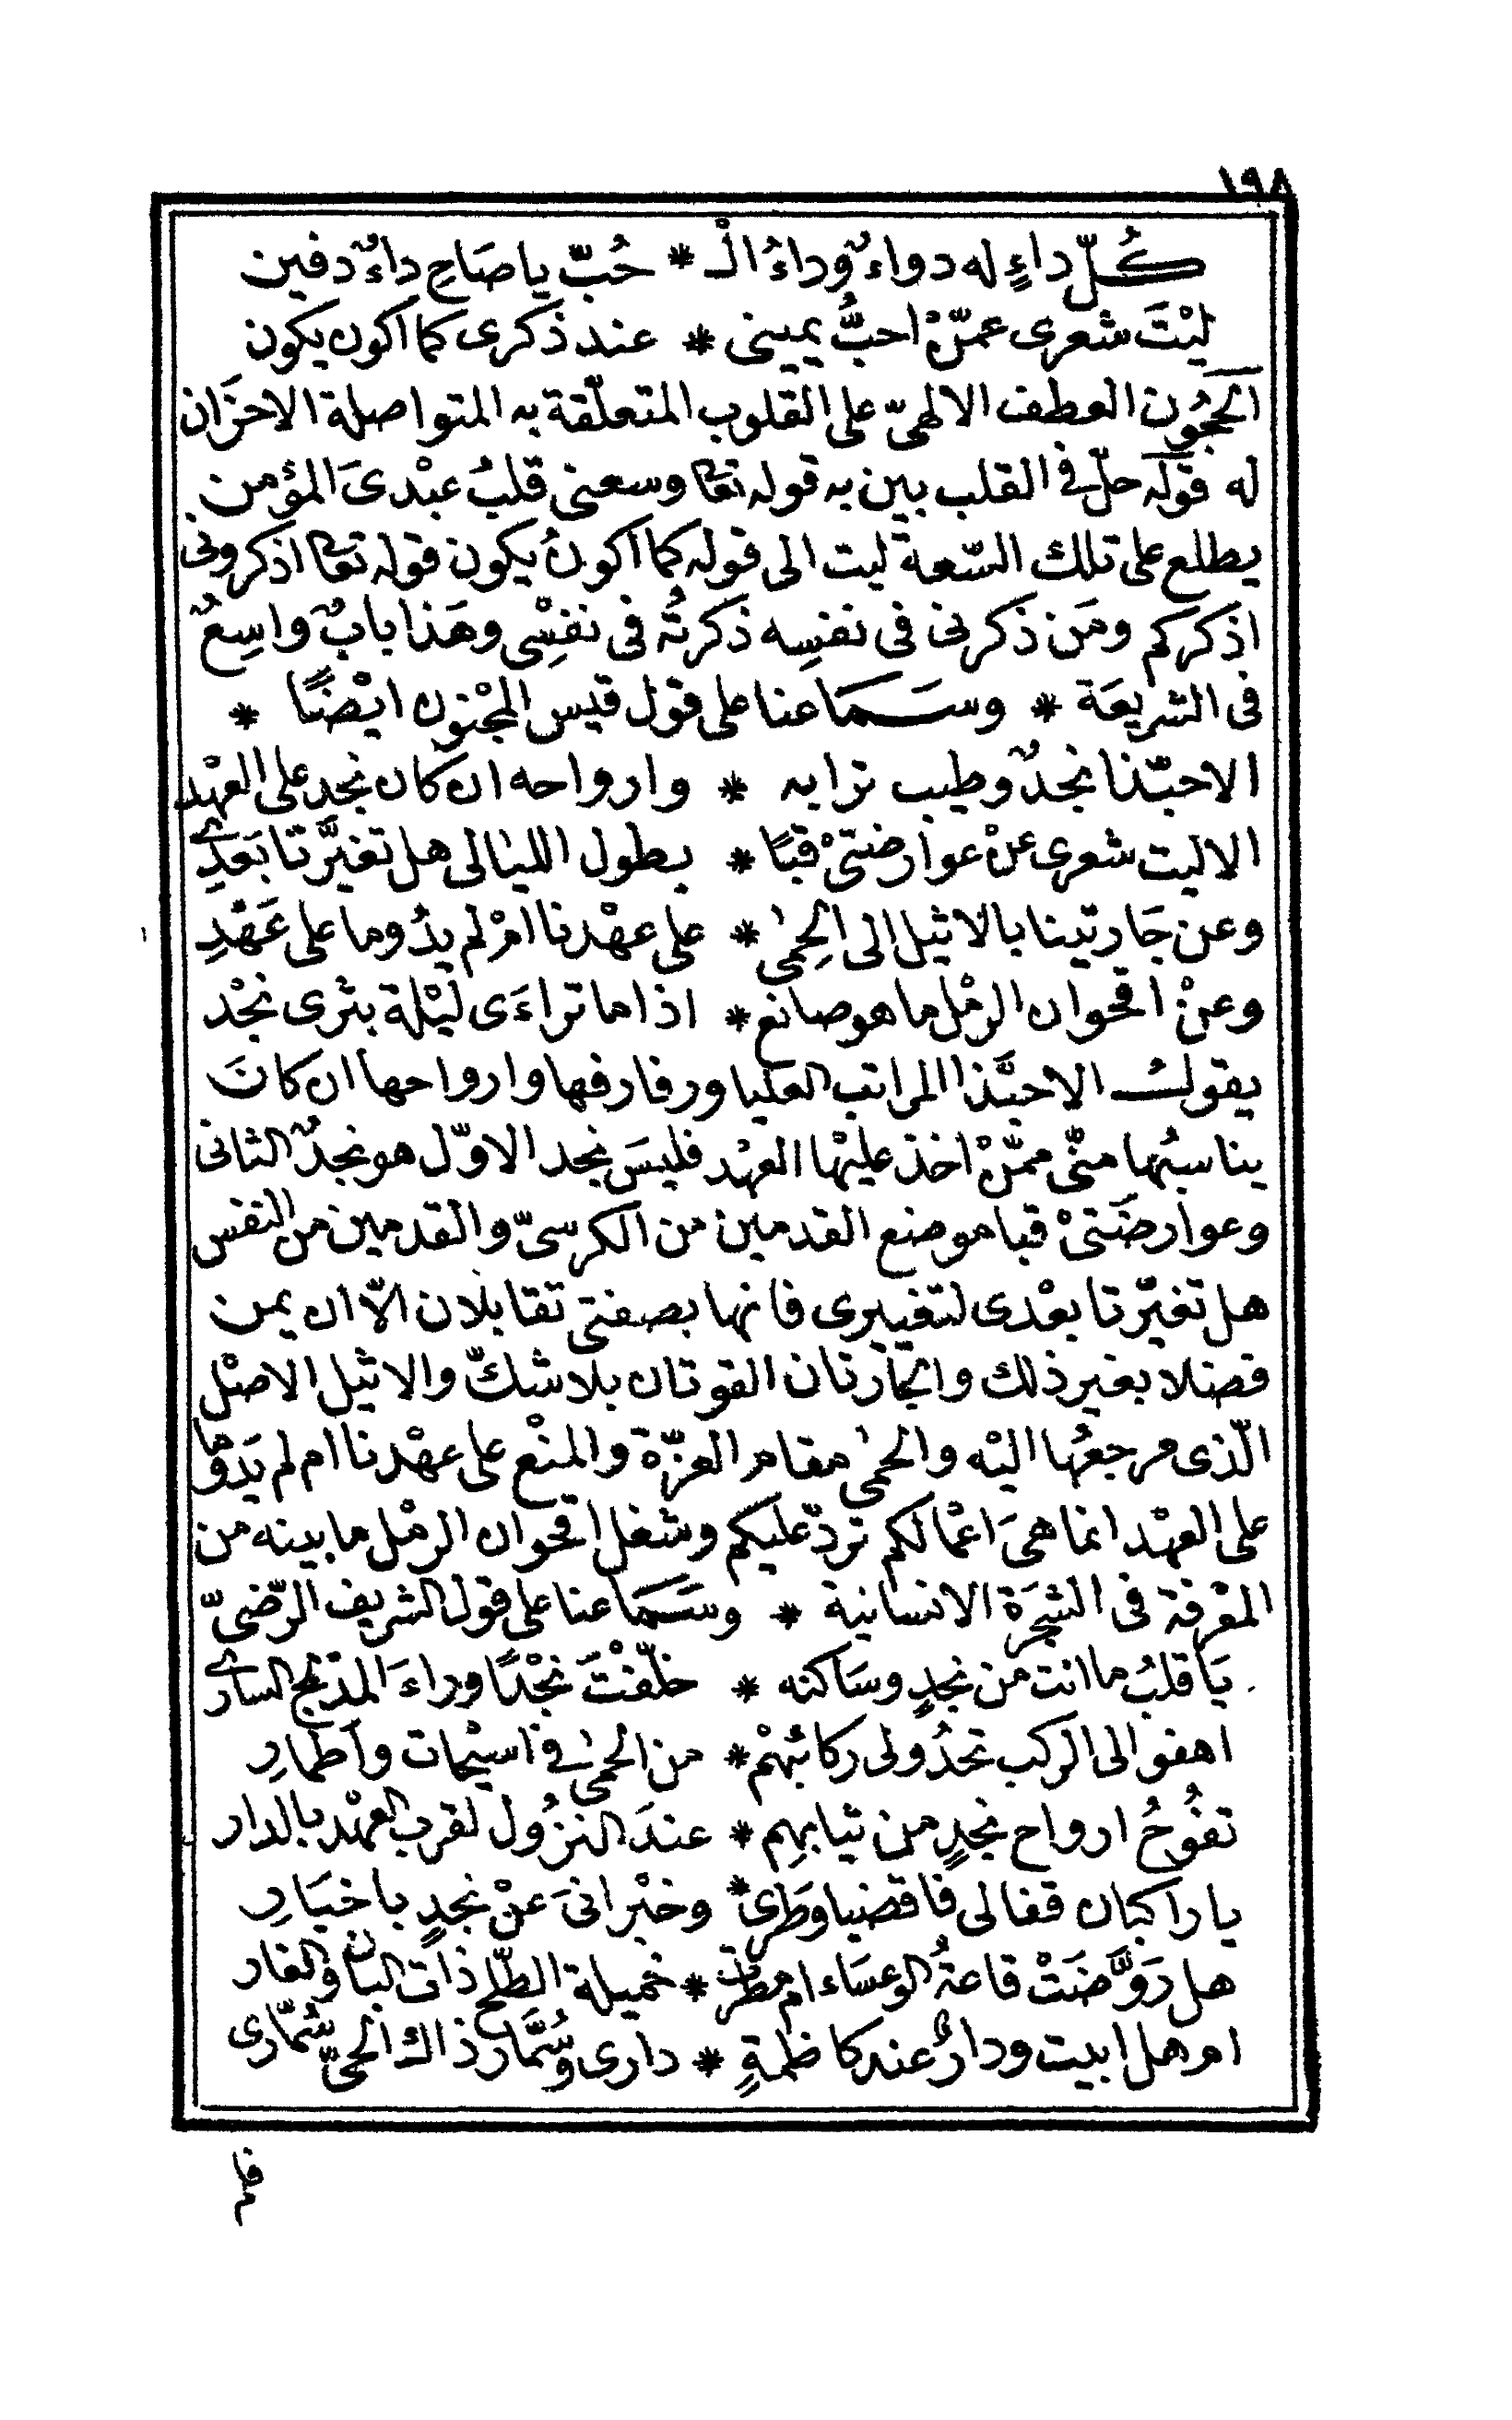 ١٩٨
كُلّ داءٍ له دواءٌ وداءُ الْـ * حُبّ يا صَاحِ داءٌ دفين
ليْتَ شعرى عمّنْ احبُّ يمينى * عند ذكرى كما اكون يكون
الحَجُون العطف الالهىّ على القلوب المتعلّقة به المتواصلة الاحزَان
له قوله حلّ فى القلب بين به قوله تعا وسعنى قلبُ عبْدىَ المؤمن
يطلع على تلك السّعة ليت الى قوله كما اكونُ يكون قوله تعا اذكرونى
اذكركم ومَن ذكرنى فى نفسِه ذكرتُه فى نفسِى وهَذا بابٌ واسِعٌ
فى الشريعَة * وسَمَاعنا على قول قيس المجْنون ايْضًا *
الاحبّذا نجدٌ وطيب ترابه * وارواحه ان كان نجد على العهْد
الاليت شعرى عنْ عوارضتىْ قبًا * بطول الليالى هل تغيَّرتا بَعدِى
وعن جَارتينا بالاثيل الى الحِمى * على عهْدنا امْ لم يدُوما على عَهْدِ
وعنْ اقحوان الرمْل ما هو صانع * اذا ما تراءَى ليْلة بثرى نجْد
يقول الاحبَّذا المراتب العليا ورفارفها وارواحها ان كانَ
يناسبُها منّى ممّنْ اخذ عليْها العهْد فليسَ نجد الاوّل هو نجدٌ الثانى
وعوارضَتىْ قبا موضع القدمين من الكرسىّ والقدمين من النفس
هل تغيّرتا بعْدى لتغييرى فانها بصفتى تقابلان الّا ان يمن
فضلا بغير ذلك والجارتان القوتان بلا شكّ والاثيل الاصْل
الّذى مرجعُها اليْه والحمى مقام العزّة والمنْع على عهْدنا ام لم يَدوما
على العهْد انما هىَ اعْمالكم تردّ عليكم وشغل اقحوان الرمْل ما بينه من
المعْرفة فى الشجَرَة الانسانية * وسَمَاعنا على قول الشريف الرّضىّ
يَا قلبُ ما انت من نجدٍ وسَاكنه * خلّفْتَ نجْدًا وراءَ المدّلج السارى
اهفو الى الركب تحدُو لى ركائبُهمْ * من الحمى فى اسيْحات واطمارِ
تفُوحُ ارواح نجدٍ من ثيابهِم * عندَ النزُول لقرب العهْد بالدار
يا راكبان قفا لى فاقضيا وَطَرى * وخبْرانىَ عنْ نجدٍ باخبَارِ
هل رَوَّضَتْ قاعةُ الوعسَاء ام مطرت * خميلة الطّلح ذات البان والغار
ام هل ابيت ودارٌ عند كاظمةٍ * دارى وسُمَّار ذاك الحىّ سُمّارى
فلم